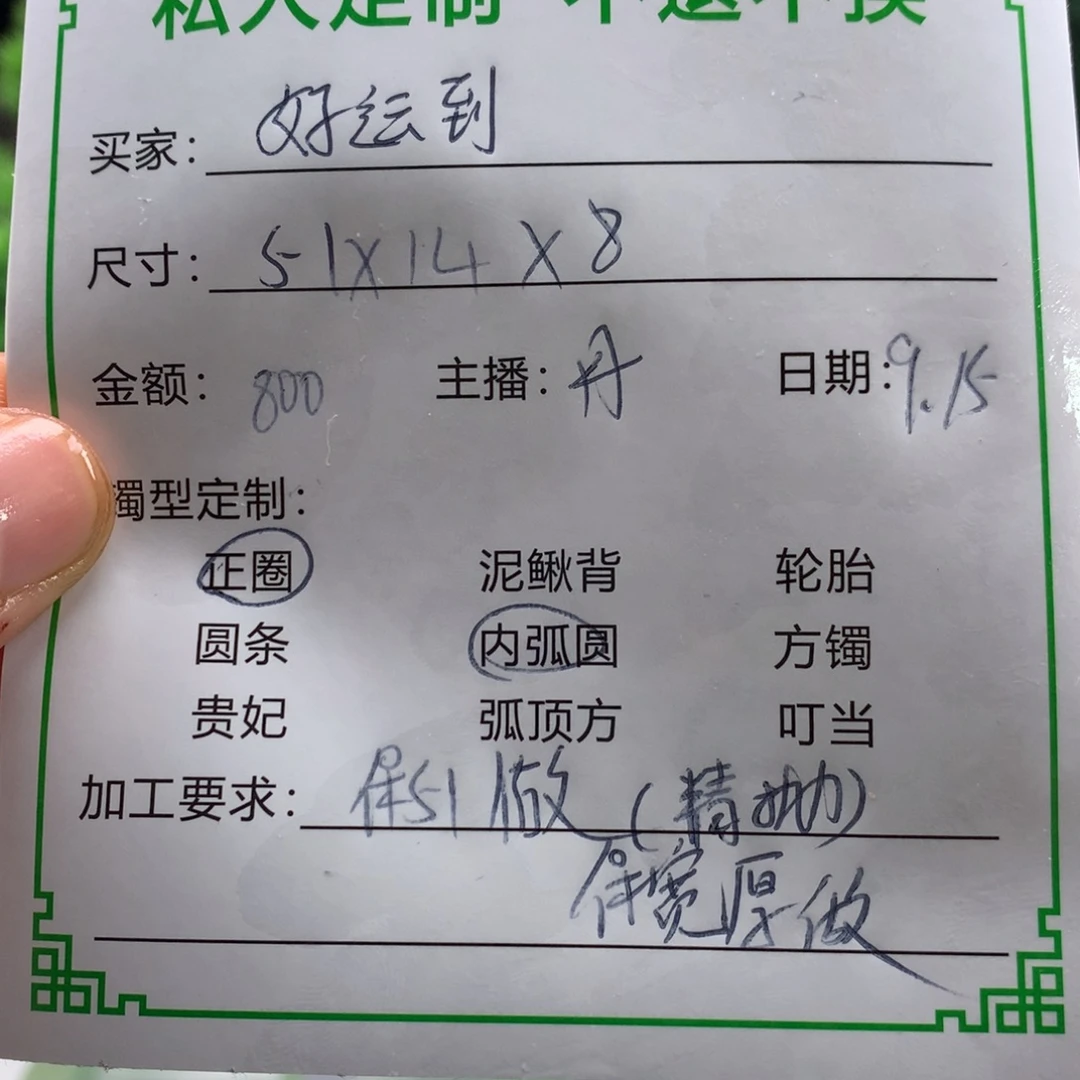 私人定制 不退不换
买家：好运到
尺寸：51X14X8
金额：800 主播：丹 日期：9.15
镯型定制：
正圈 泥鳅背 轮胎
圆条 内弧圆 方镯
贵妃 弧顶方 叮当
加工要求：保51做（精抛）
保宽厚做